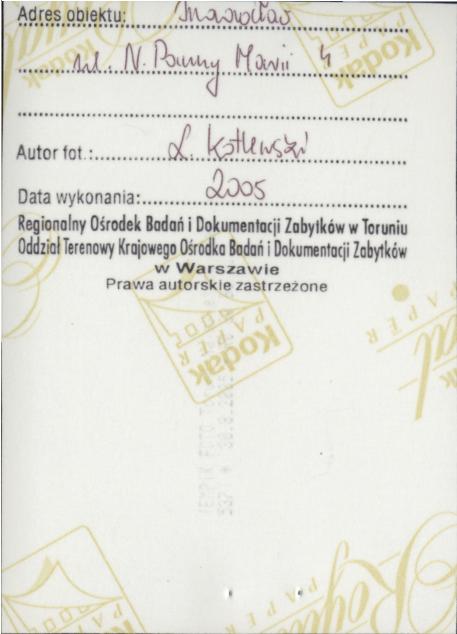 Adres obiektu: Inowrocław
ul. N. Panny Marii 4
Autor fot.: L. Kotlewski
Data wykonania: 2005
Regionalny Ośrodek Badań i Dokumentacji Zabytków w Toruniu
Oddział Terenowy Krajowego Ośrodka Badań i Dokumentacji Zabytków
w Warszawie
Prawa autorskie zastrzeżone
Kodak
PAPER
Kodak
PAPER
Kodak
PAPER
Royal
PAPER
Kodak
PAPER
Royal
PAPER